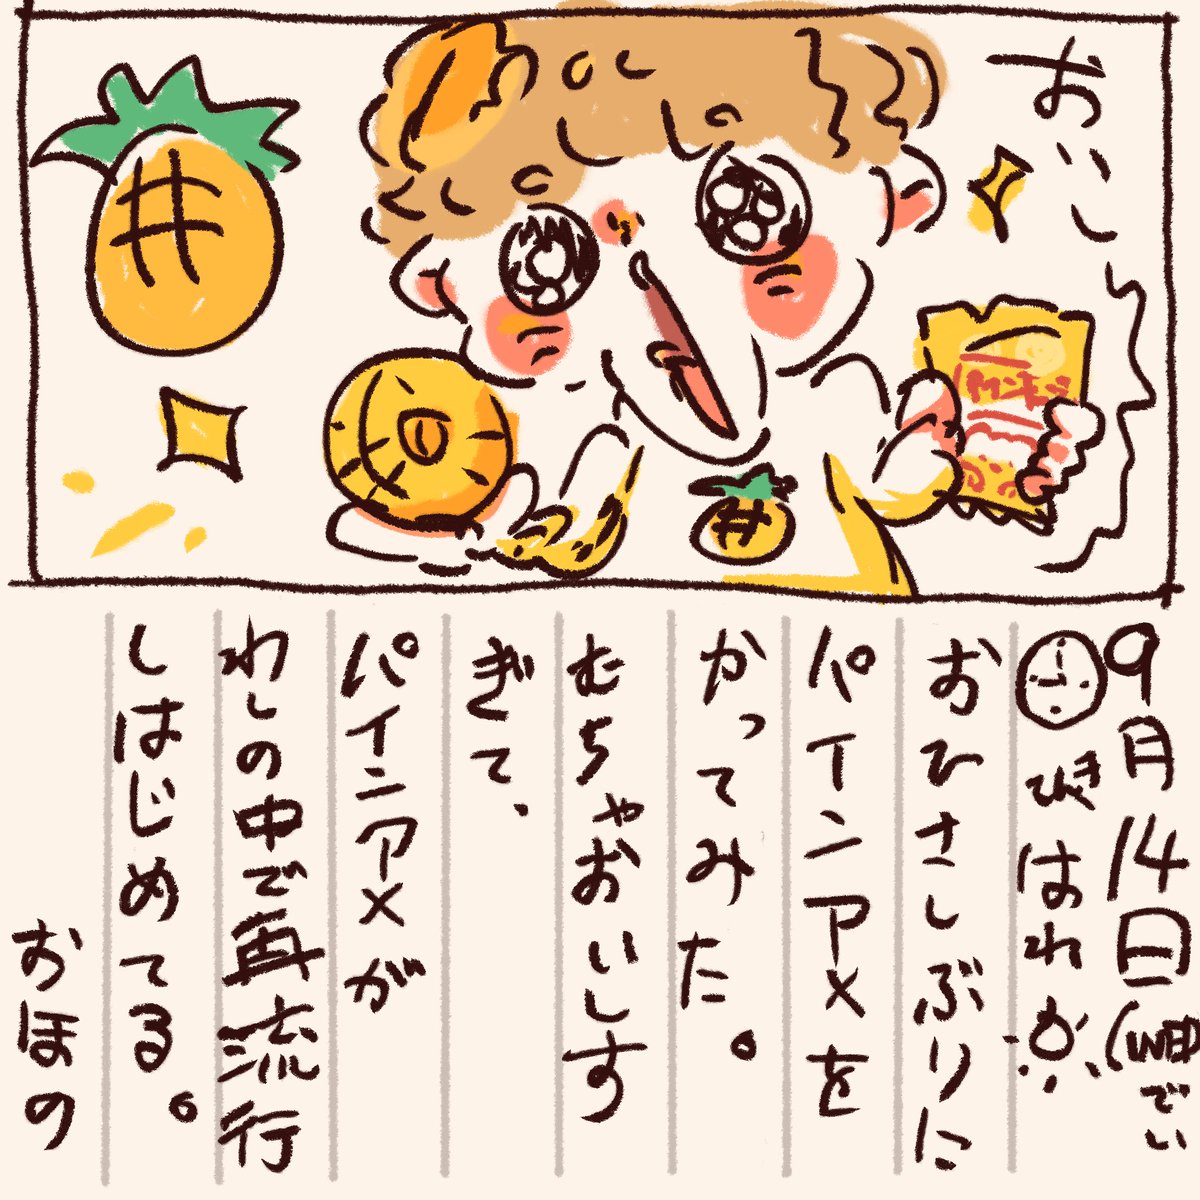 おいしー
パインアメ
9月14日(WED)でい
びはれ
おひさしぶりに
パインアメを
かってみた。
むちゃおいしす
ぎて、
パインアメが
わしの中で再流行
しはじめてる。
おほの